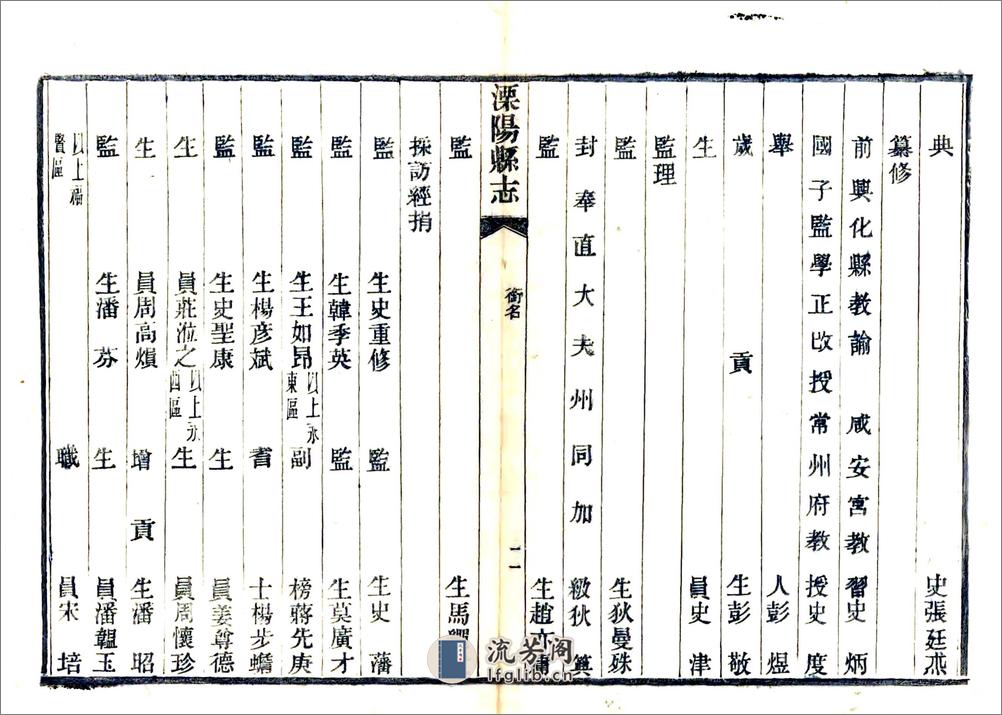 典史張廷杰
纂修
前興化縣教諭咸安宮教習史炳
國子監學正改授常州府教授史度
舉人彭煜
歲貢生彭敬
生員史津
監理
監生狄曼殊
封奉直大夫州同加級狄
監生趙亦
溧陽縣志
銜名
二
監生馬
採訪經捐
監生史重修
監生史藩
監生韓季英
監生莫廣才
監生王如昂以上永東區
副榜蔣先庚
監生楊彥斌
耆士楊步蟾
監生史聖康
生員姜尊德
生員莊涖之以上永西區
生員周懷珍
生員周高熉
增貢生潘昭
監生潘芬
生員潘韞玉
以上福賢區
職員宋培
流芳阁
lfglib.cn